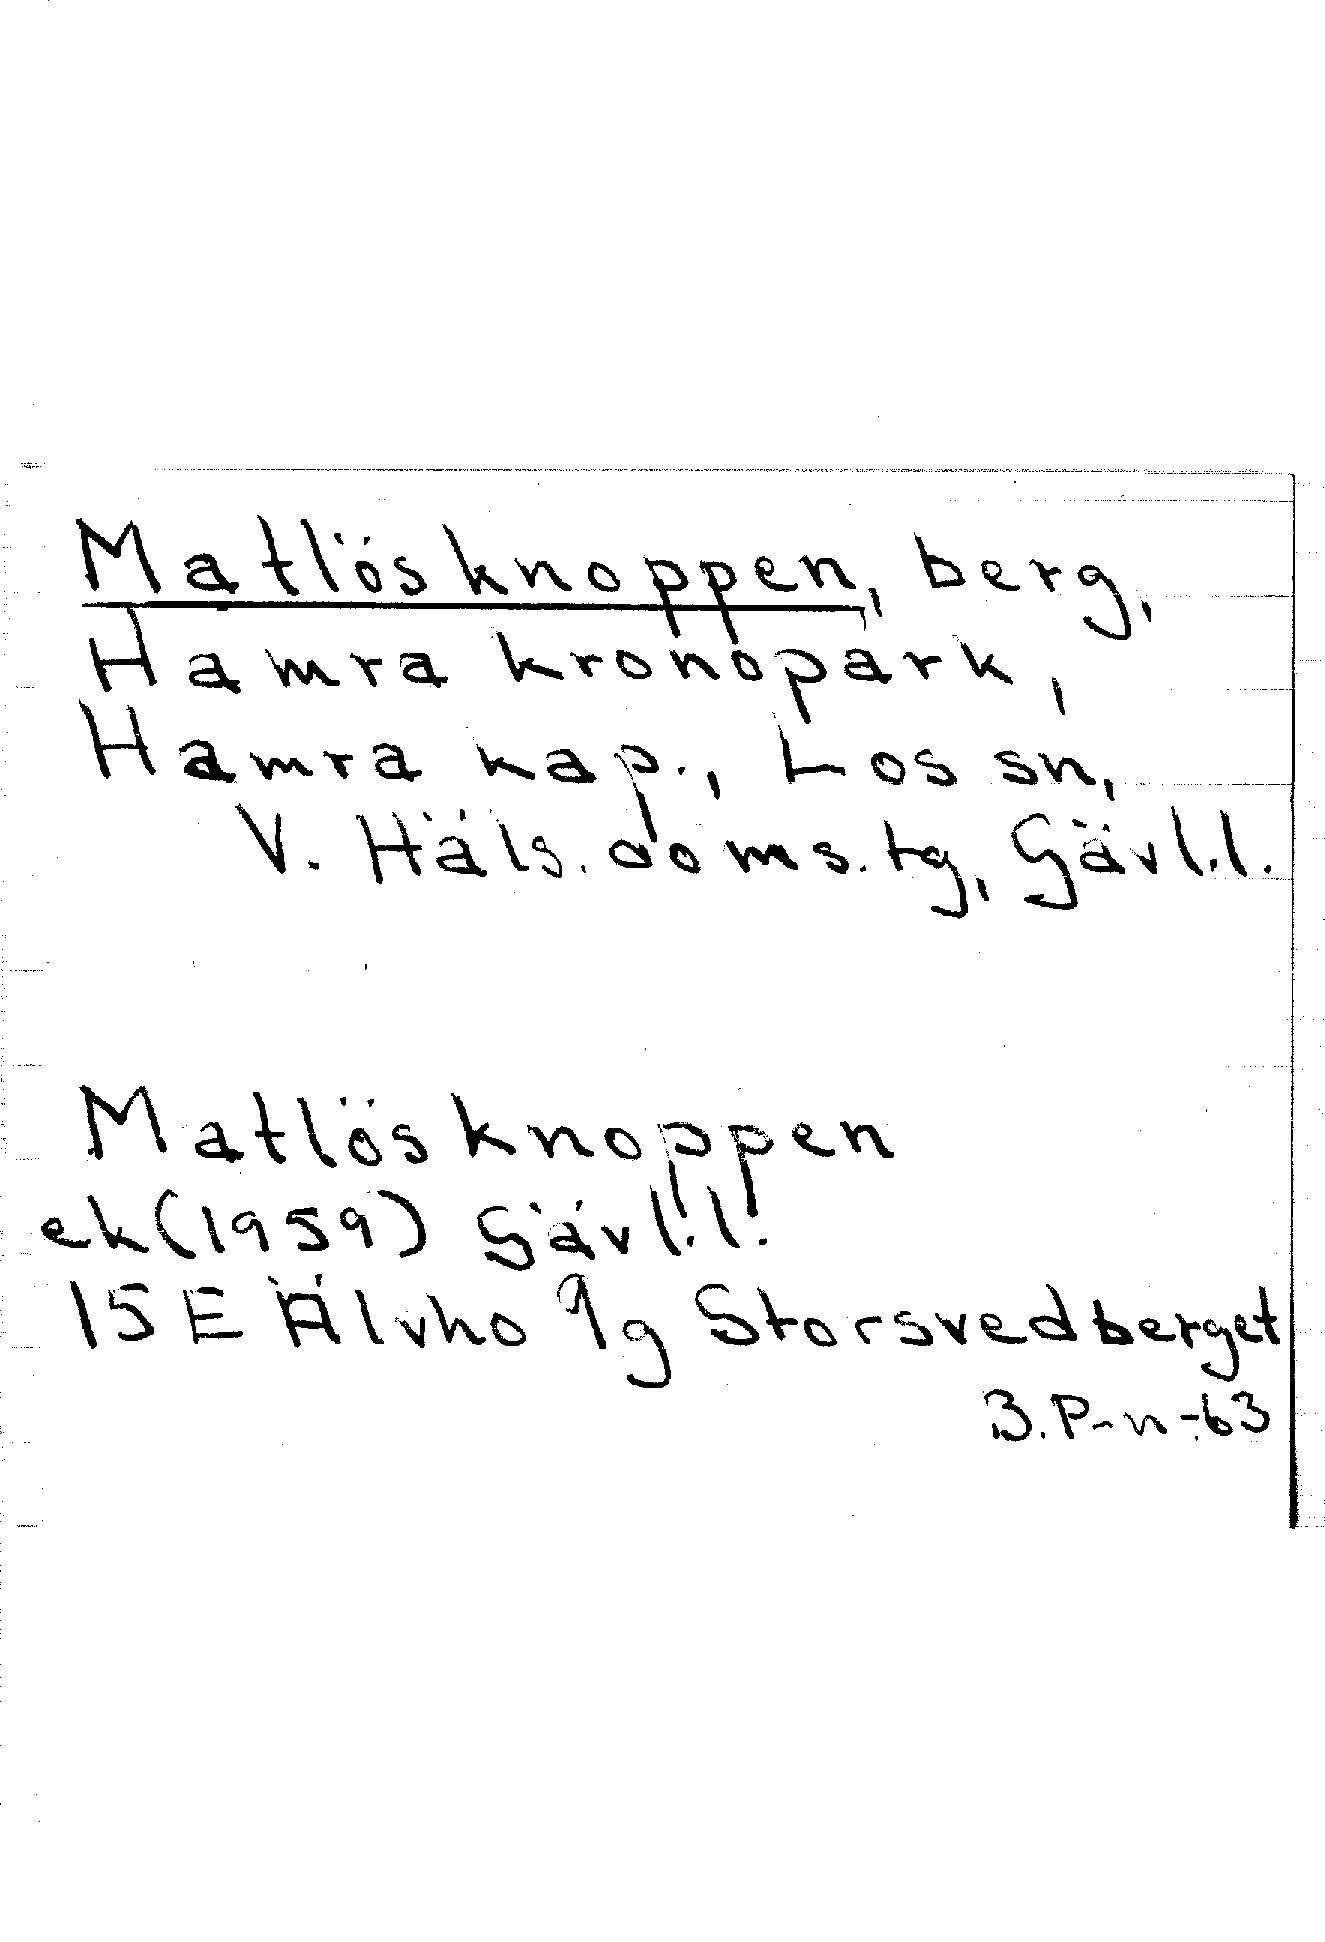 Matlösknoppen, berg,
Hamra kronopark,
Hamra kap., Los sn,
V. Häls. doms.tg, Gävl.l.
Matlösknoppen
ek (1959) Gävl.l.
15E Älvho 9g Storsvedberget
B.P-n -63